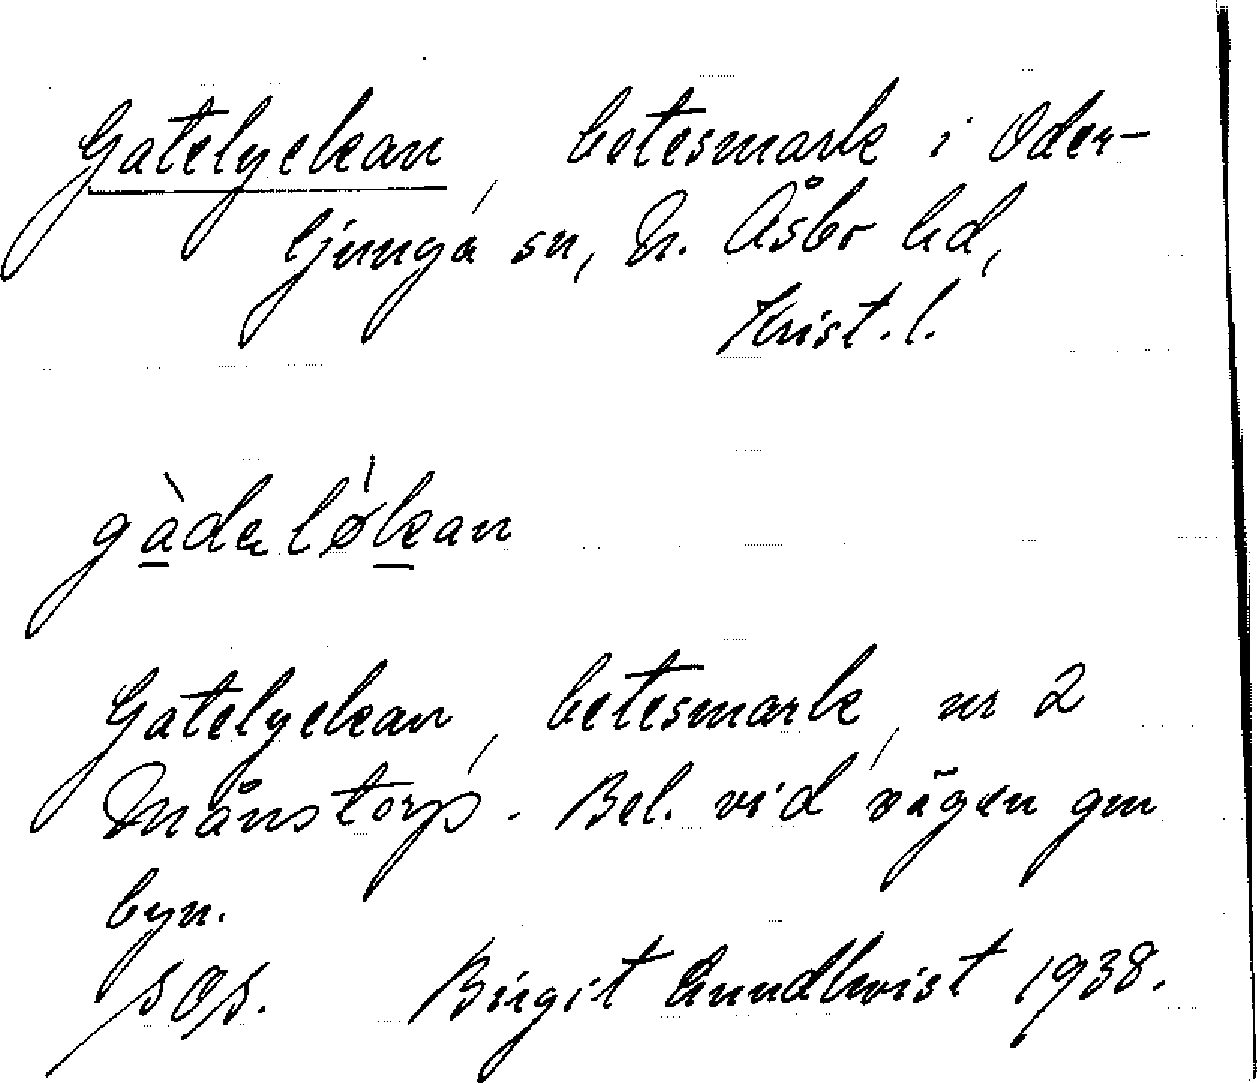 Gatelyckan, betesmark i Oder-
ljunga sn, N. Åsbo hd,
Krist. l.
gàdeløkan
Gatelyckan, betesmark, nr 2
Månstorp. Bel. vid vägen gm
byn.
SOS. Birgit Lundkvist 1938.